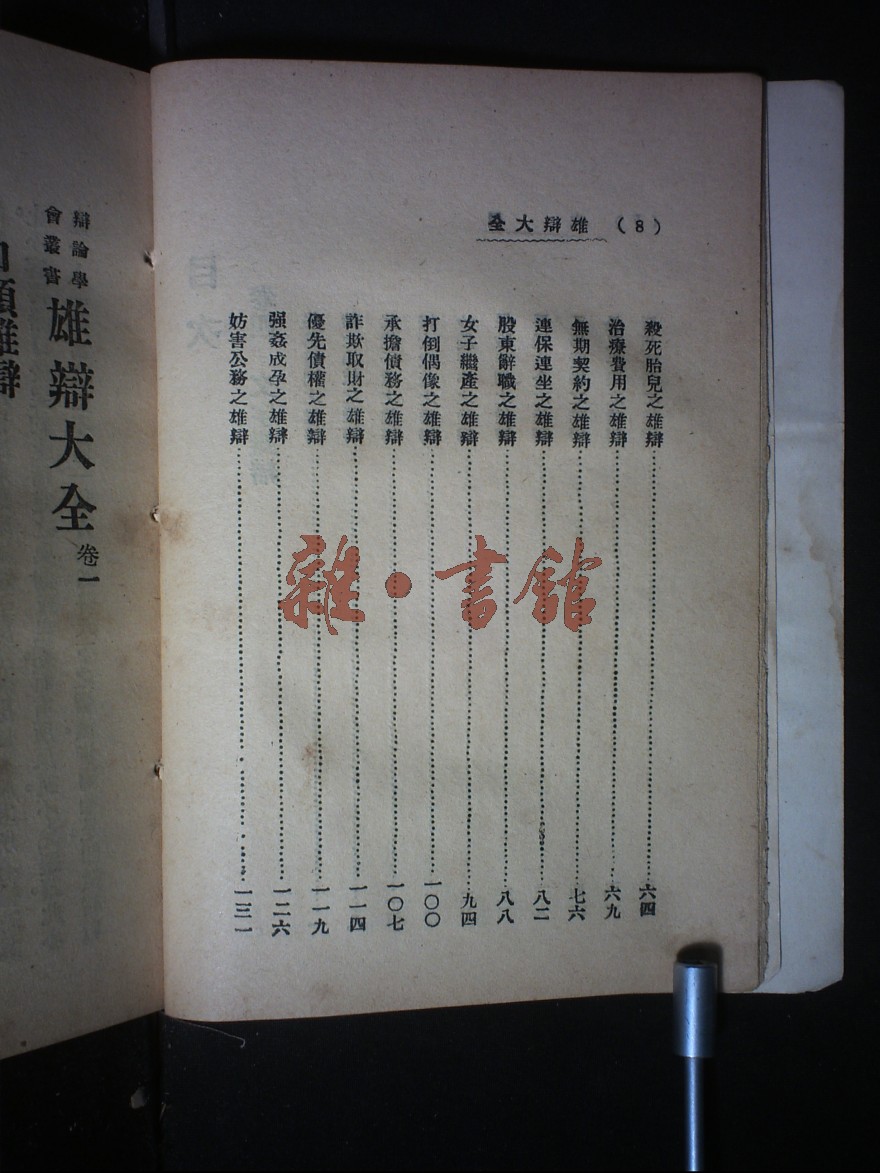 雄辯大全 (8)
殺死胎兒之雄辯……六四
治療費用之雄辯……六九
無期契約之雄辯……七六
連保連坐之雄辯……八二
股東辭職之雄辯……八八
女子繼產之雄辯……九四
打倒偶像之雄辯……一〇〇
承擔債務之雄辯……一〇七
詐欺取財之雄辯……一一四
優先債權之雄辯……一一九
强姦成孕之雄辯……一二六
妨害公務之雄辯……一三一
雜·書館
辯論學
會叢書
雄辯大全 卷一